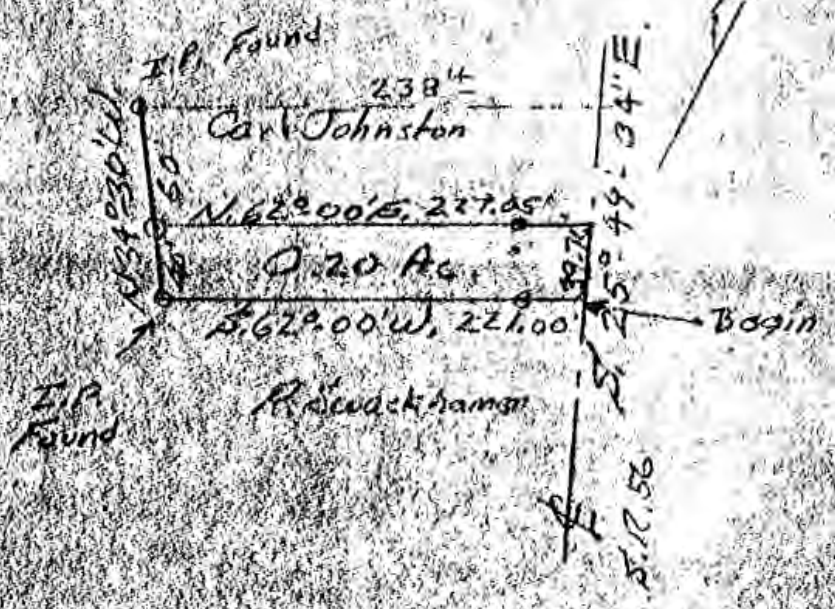 I.P. Found
238'±
Carl Johnston
N34°30'W
N.62°00'E, 227.05'
0.20 Ac.
S.62°00'W, 221.00'
Begin
S. 25°-49'-34"E.
I.P.
Found
R. Swackhamer
S.R. 56